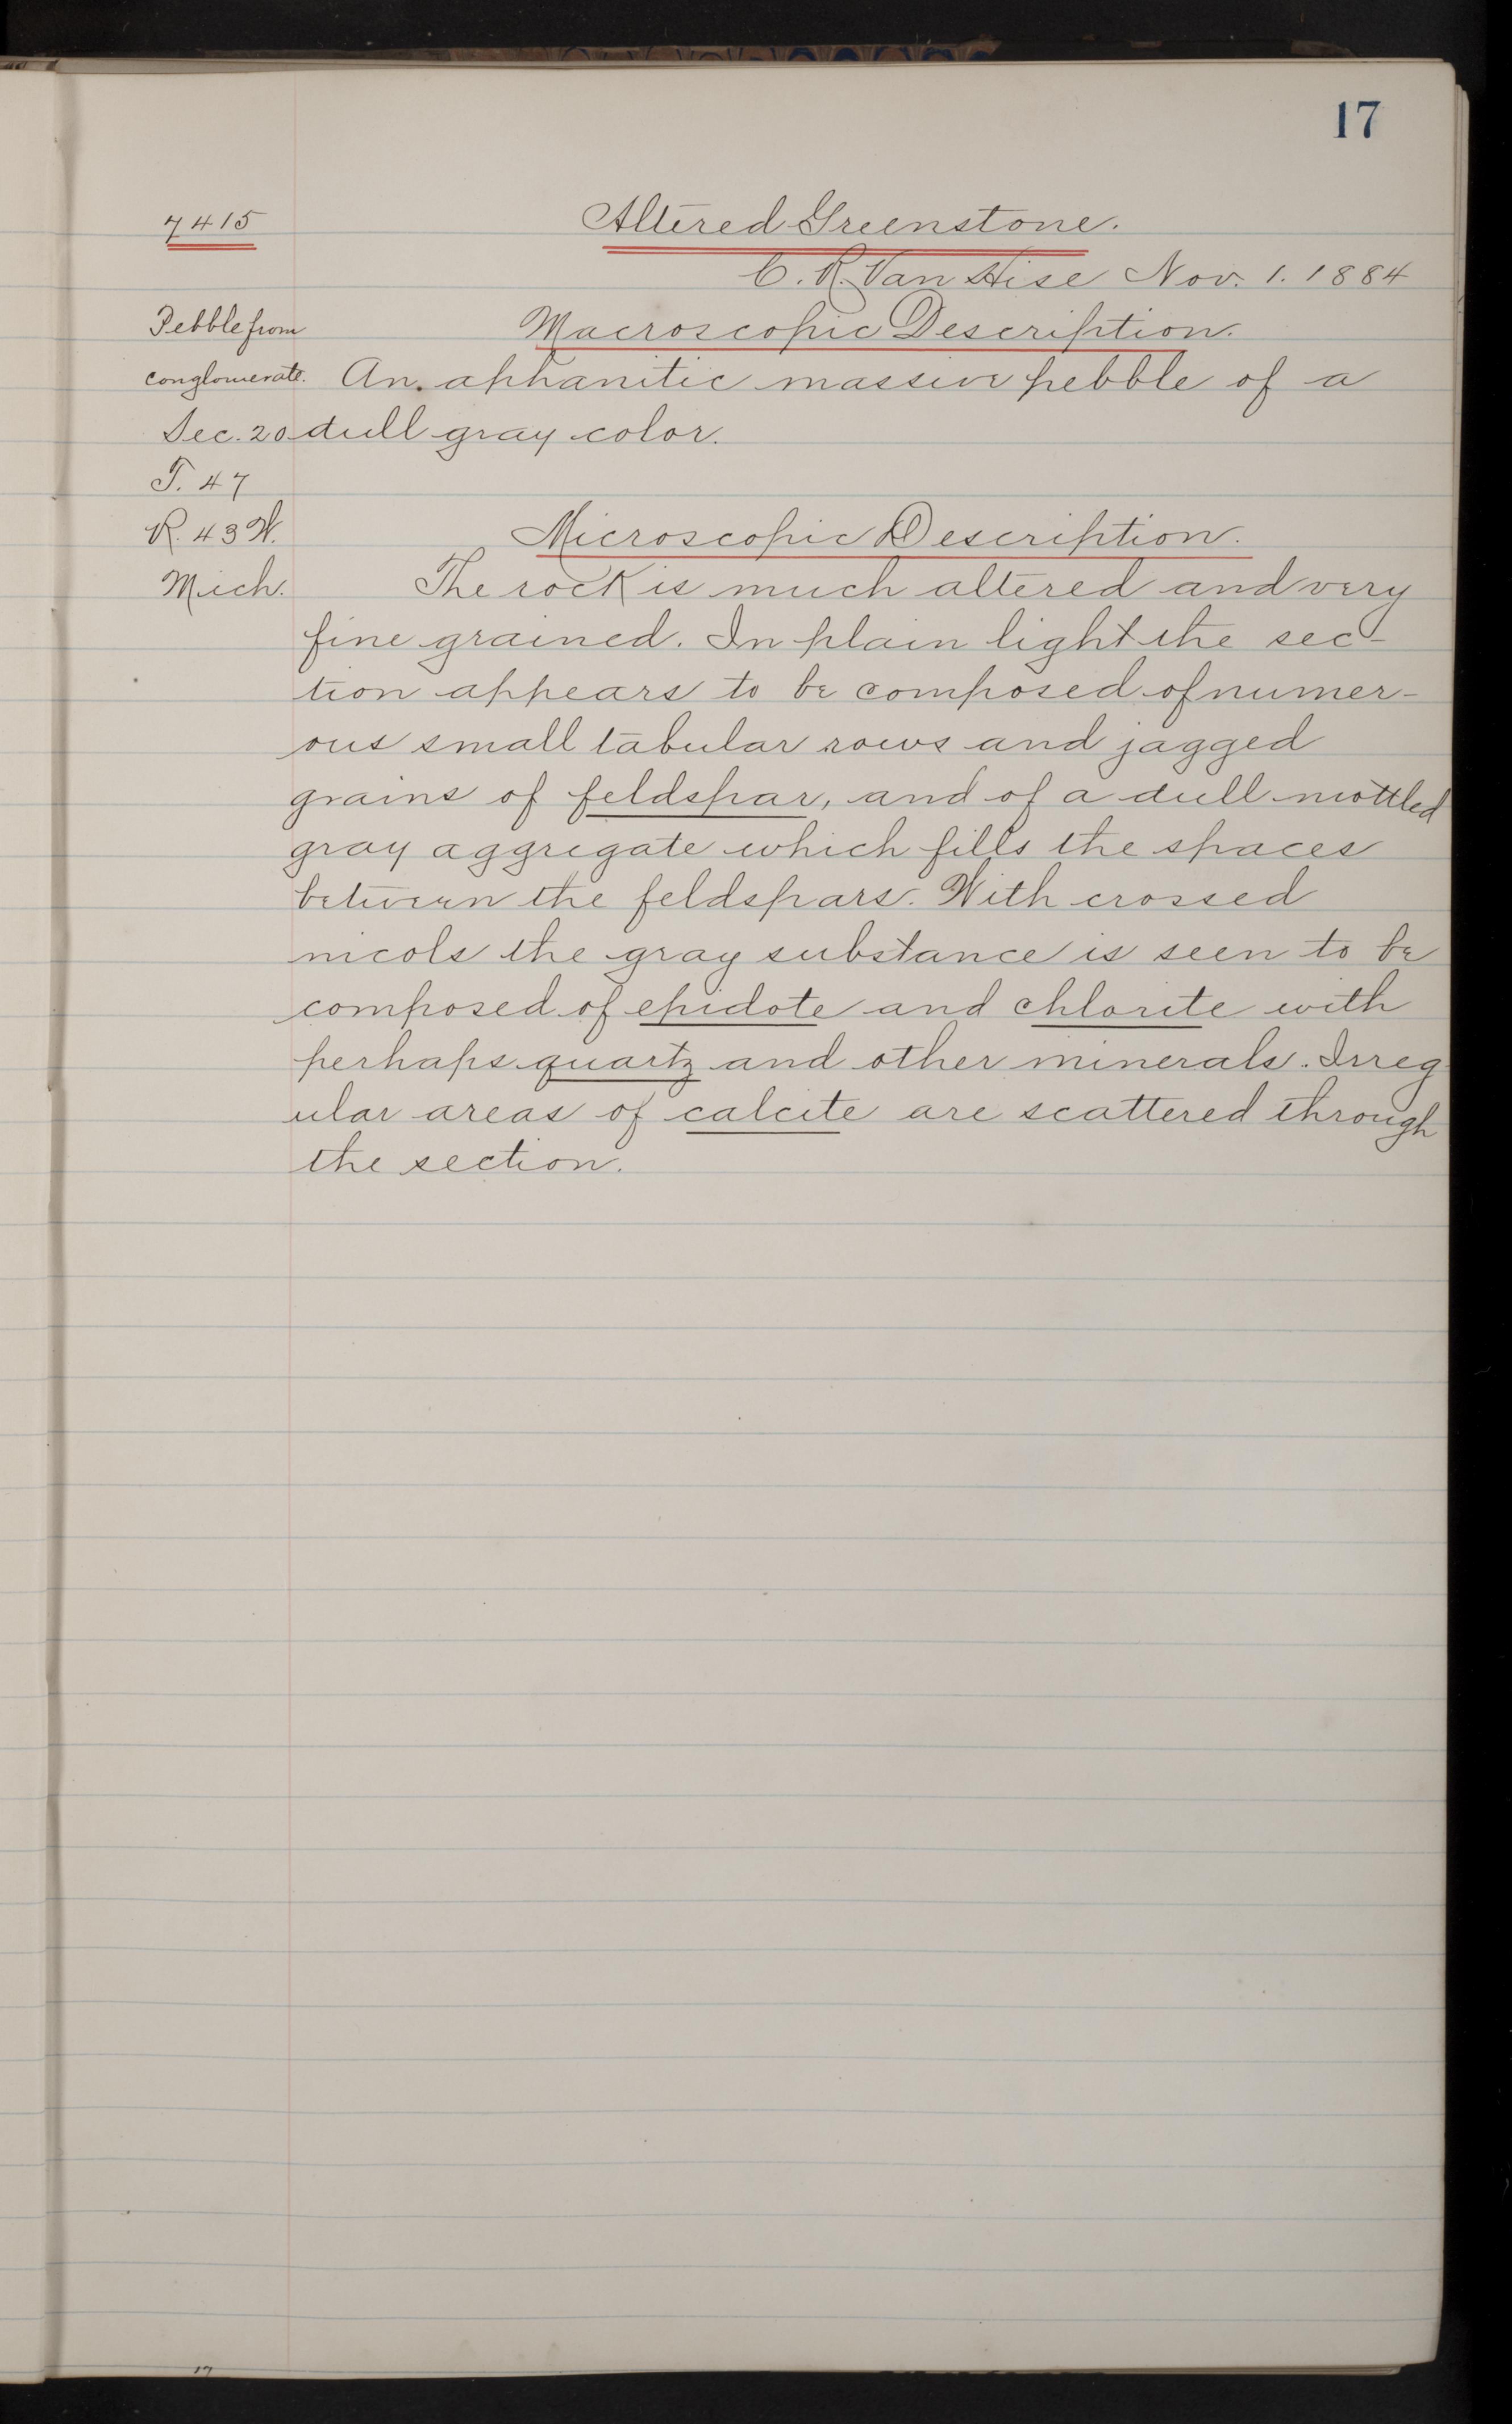 17
7415
Altered Greenstone.
C. R. Van Hise Nov. 1. 1884
Pebble from
conglomerate.
Sec. 20
T. 47
R. 43 W.
Mich.
Macroscopic Description.
An aphanitic massive pebble of a
dull gray color.
Microscopic Description.
The rock is much altered and very
fine grained. In plain light the sec-
tion appears to be composed of numer-
ous small tabular rows and jagged
grains of feldspar, and of a dull mottled
gray aggregate which fills the spaces
between the feldspars. With crossed
nicols the gray substance is seen to be
composed of epidote and chlorite with
perhaps quartz and other minerals. Irreg-
ular areas of calcite are scattered through
the section.